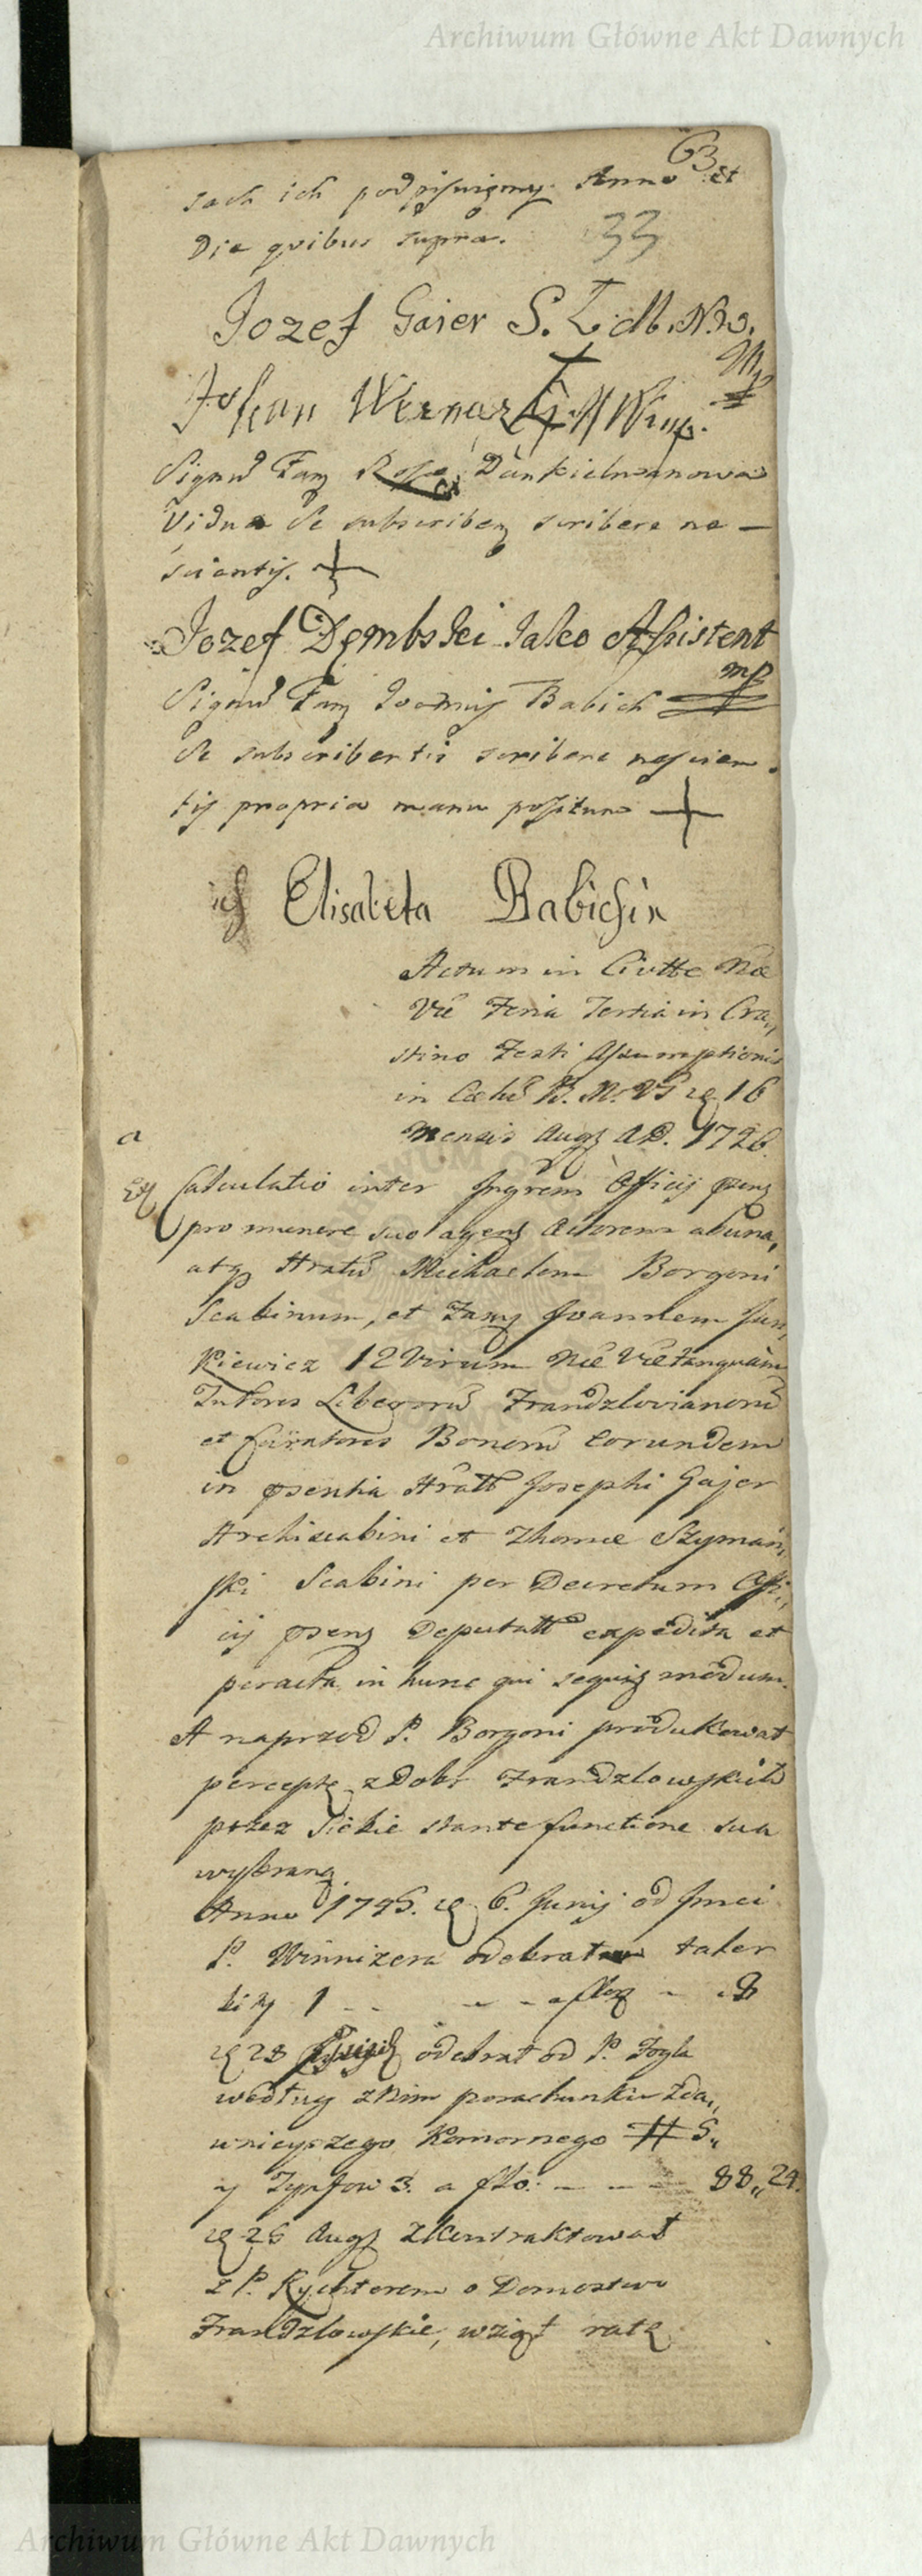 Archiwum Główne Akt Dawnych
63
sach ich podpisuiemy Anno et
Die quibus supra.
33
Jozef Gaier S.
mp
Johan Werner
Signũ Fam Rosa Dunkielmanowa
Vidua se subscribenz scribere ne —
scientis. +
Jozef Dembski Jako Assistent
mp
Signũ Fam Joannis Babich
se subscribentis scribere nescien
tis propria manu positum +
ich Elisabeta Babichin
Actum in Civtte Nae
Vae Feria Tertia in Cra,,
stino Festi Assumptionis
in Caelũ B. M. V. 16
mensis Aug A.D. 1746.
a
Calculatio inter Officij
pro munere suo agenz Actorem ab una,
atq Hratũ Michaelem Borgoni
Scabinum, et Famz Joannem Jan,,
kiewicz 12 Virum Nae Vae tanquam
Tutores Liberorũ Frandzlovianorũ
et Curatores Bonorũ eorundem
in psentia Hratt Josephi Gajer
Archiscabini et Thomae Szyman,,
ski Scabini per Decretum Offi,,
cij psenz Deputatt expedita et
peracta in hunc qui sequiz modum.
A naprzod P. Borgoni produkował
percepte z Dobr Frandzlowskich
przez siebie stante functione sua
wybraną
Anno 1745. 6. Junij od Jmci
P. Winnizera odebrał taler
bity 1 - - - - a flor - 8
28 odebrał od P. Fogla
według z nim porachunku zda,,
wnieyszego Komornego # 5,,
y Tynfow 3. a flo: - - - 88,,24.
25 Aug zkontraktował
z P. Rychterem o Domostwo
Frandzlowskie, wziął ratę
Archiwum Główne Akt Dawnych